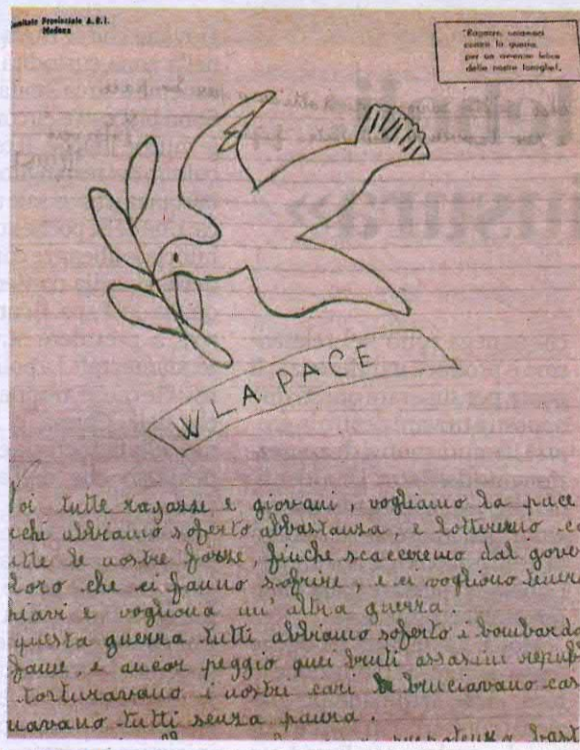 Comitato Provinciale A.R.I.
Modena
"Ragazze, uniamoci
contro la guerra,
per un avvenire felice
delle nostre famiglie!.
W LA PACE
oi tutte ragazze e giovani, vogliamo la pace
chi abbiamo soferto abbastanza, e lotteremo c
utte le nostre forze, finche scacceremo dal gove
loro che ci fanno sofrire, e ci vogliono tener
hiavi e vogliona un' altra guerra.
questa guerra tutti abbiamo soferto i bombard
fame, e ancor peggio quei bruti assasini repub
torturavano i nostri cari bruciavano cas
navano tutti senza paura.